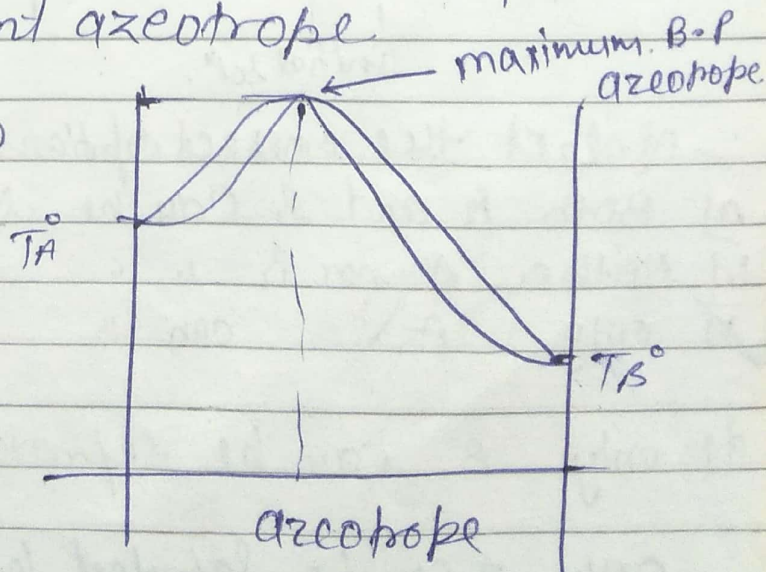 nt azeotrope
maximum. B.P
azeotrope
TA°
TB°
azeotrope